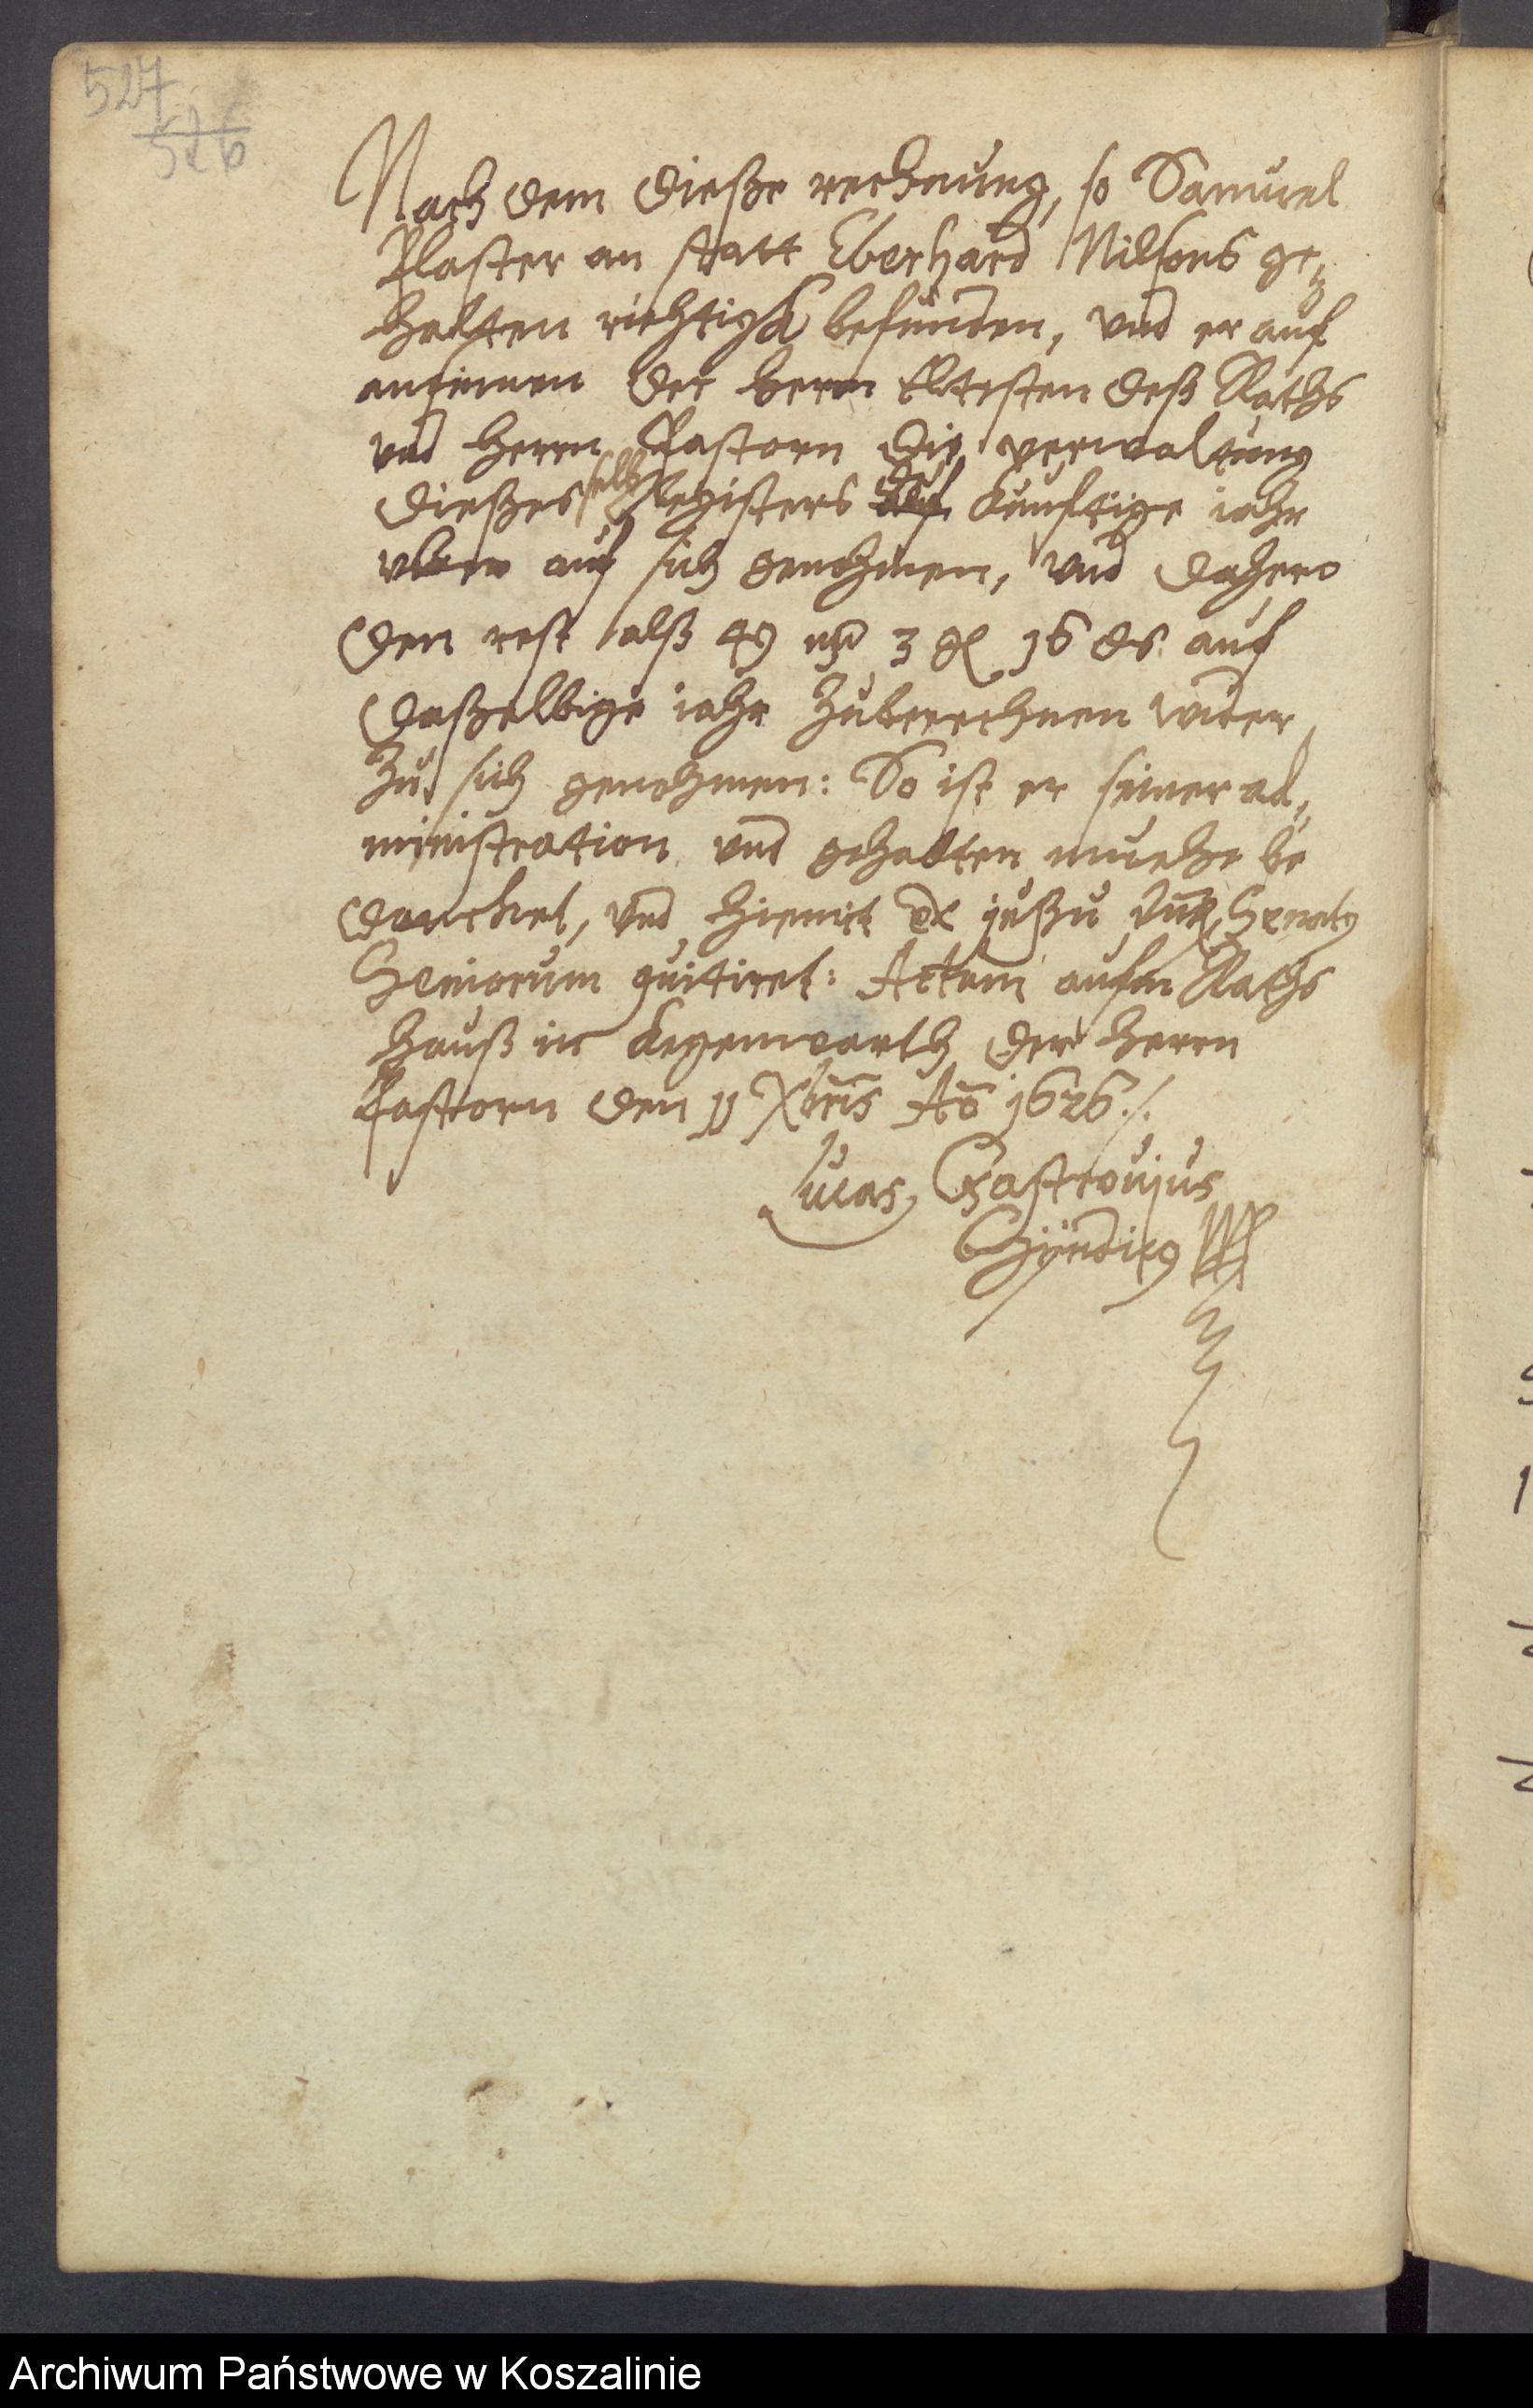 527
526
Nach dem dieße rechnung, so Samuel
Plaster an statt Eberhard Nilsons ge¬
halten richtigk befunden, und er auf
ansinnen der herrn Eltesten deß Raths
und herrn Pastorn die verwaltung
dießes selb Registers künftige iahr
uber auf sich genohmen, und dahero
den rest alß 49 3 gl 16 auf
daßelbige iahr zuberechnen wider
zu sich genohmen: So ist er seiner ad¬
ministration und gehabten muehe be
dancket, und hiemit ex jußu Senatq
Seniorum quitiret: Actum aufm Raths
hauß in kegenwarth der herrn
Pastorn den 11 Xbris Aō 1626 ./.
Lucas Gastrovius
Syndicq
Archiwum Państwowe w Koszalinie